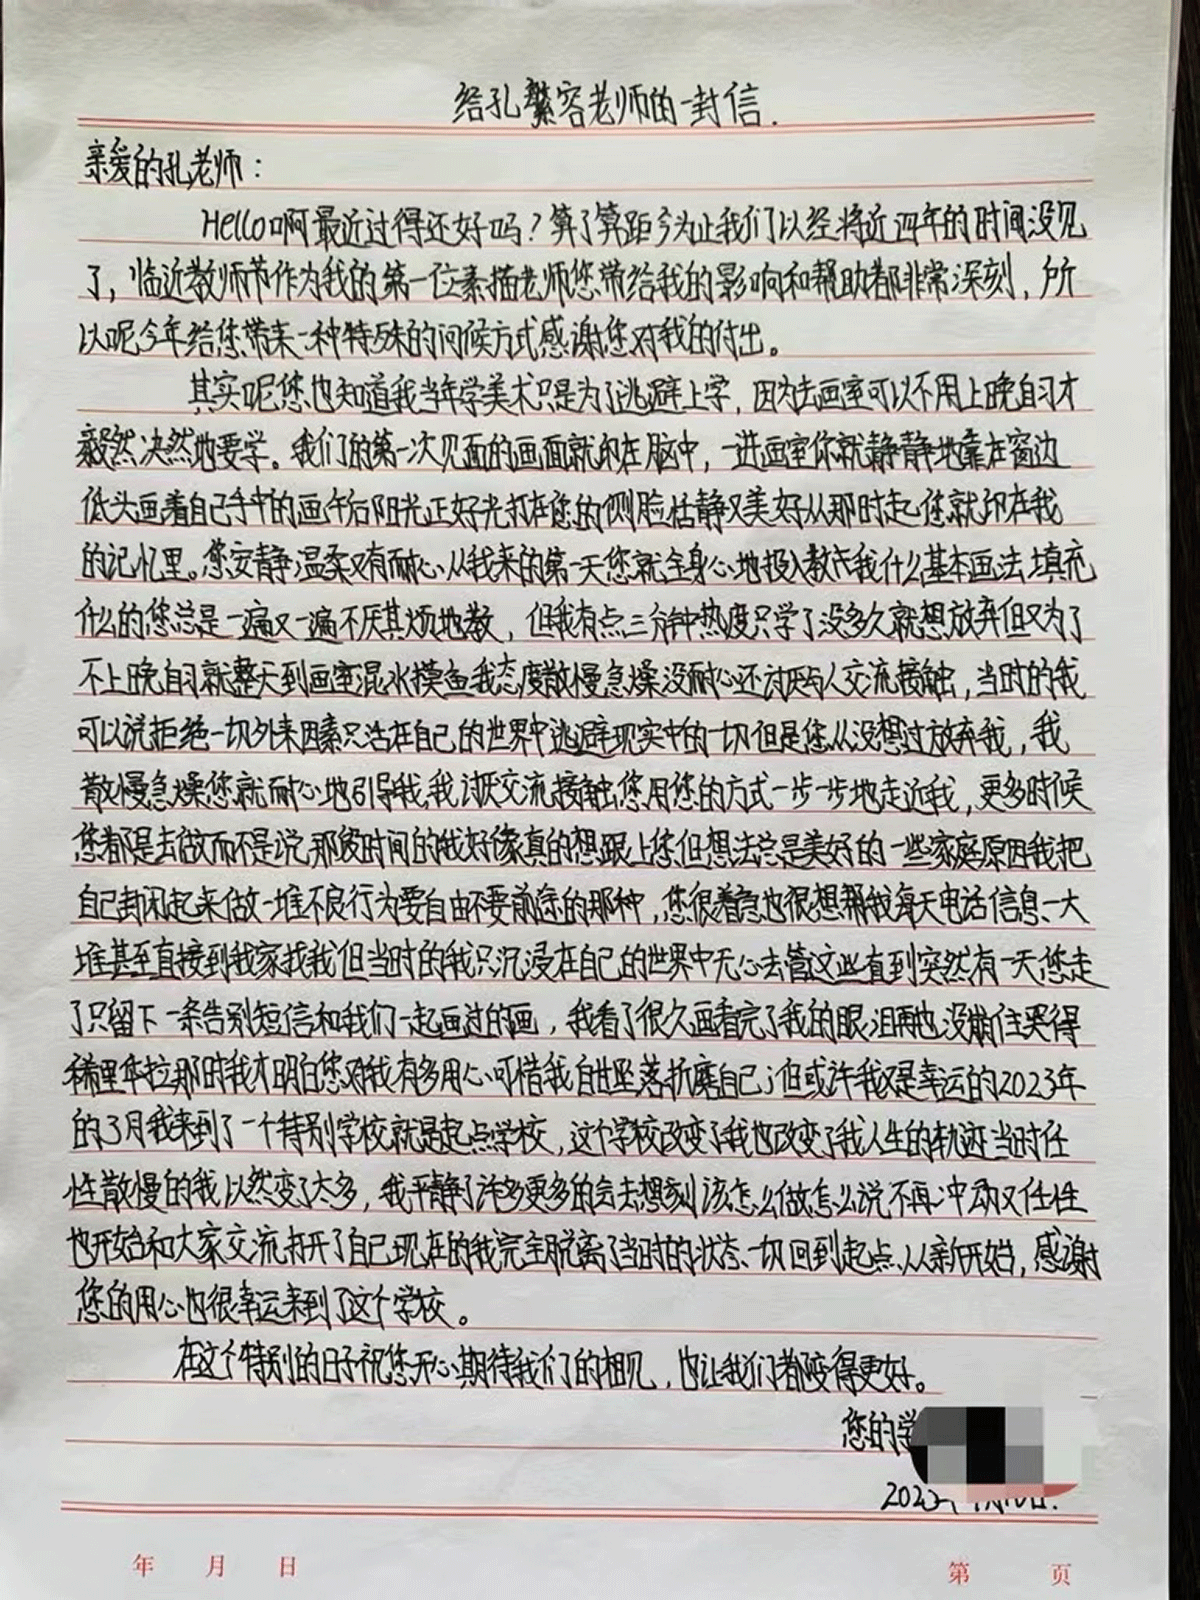 给孔繁容老师的一封信.
亲爱的孔老师：
Hello啊最近过得还好吗？算了算距今为止我们以经将近四年的时间没见
了，临近教师节作为我的第一位素描老师您带给我的影响和帮助都非常深刻，所
以呢今年给您带来一种特殊的问候方式感谢您对我的付出。
其实呢您也知道我当年学美术只是为了逃避上学，因为去画室可以不用上晚自习才
毅然决然地要学。我们的第一次见面的画面就印在脑中，一进画室你就静静地靠在窗边
低头画着自己手中的画午后阳光正好光打在您的侧脸恬静又美好从那时起您就印在我
的记忆里。您安静温柔又有耐心从我来的第一天您就全身心地投入教我什么基本画法填充
什么的您总是一遍又一遍不厌其烦地教，但我有点三分钟热度只学了没多久就想放弃但又为了
不上晚自习就整天到画室混水摸鱼我态度散慢急燥没耐心还讨厌与人交流接触，当时的我
可以说拒绝一切外来因素只活在自己的世界中逃避现实中的一切但是您从没想过放弃我，我
散慢急燥您就耐心地引导我我讨厌交流接触您用您的方式一步一步地走近我，更多时候
您都是去做而不是说那段时间的我好像真的想跟上您但想法总是美好的一些家庭原因我把
自己封闭起来做一堆不良行为要自由不要前途的那种，您很着急也很想帮我每天电话信息一大
堆甚至直接到我家找我但当时的我只沉浸在自己的世界中无心去管这些直到突然有一天您走
了只留下一条告别短信和我们一起画过的画，我看了很久画看完了我的眼泪再也没崩住哭得
稀里华拉那时我才明白您对我有多用心可惜我自世坠落折磨自己了但或许我又是幸运的2023年
的3月我来到了一个特别学校就是起点学校，这个学校改变了我也改变了我人生的轨迹当时任
性散慢的我以然变了太多，我平静了许多更多的会去想刻该怎么做怎么说不再冲动又任性
也开始和大家交流打开了自己现在的我完全脱离了当时的状态一切回到起点从新开始，感谢
您的用心也很幸运来到了这个学校。
在这个特别的日子祝您开心期待我们的相见，也让我们都变得更好。
您的学
年 月 日
第 页